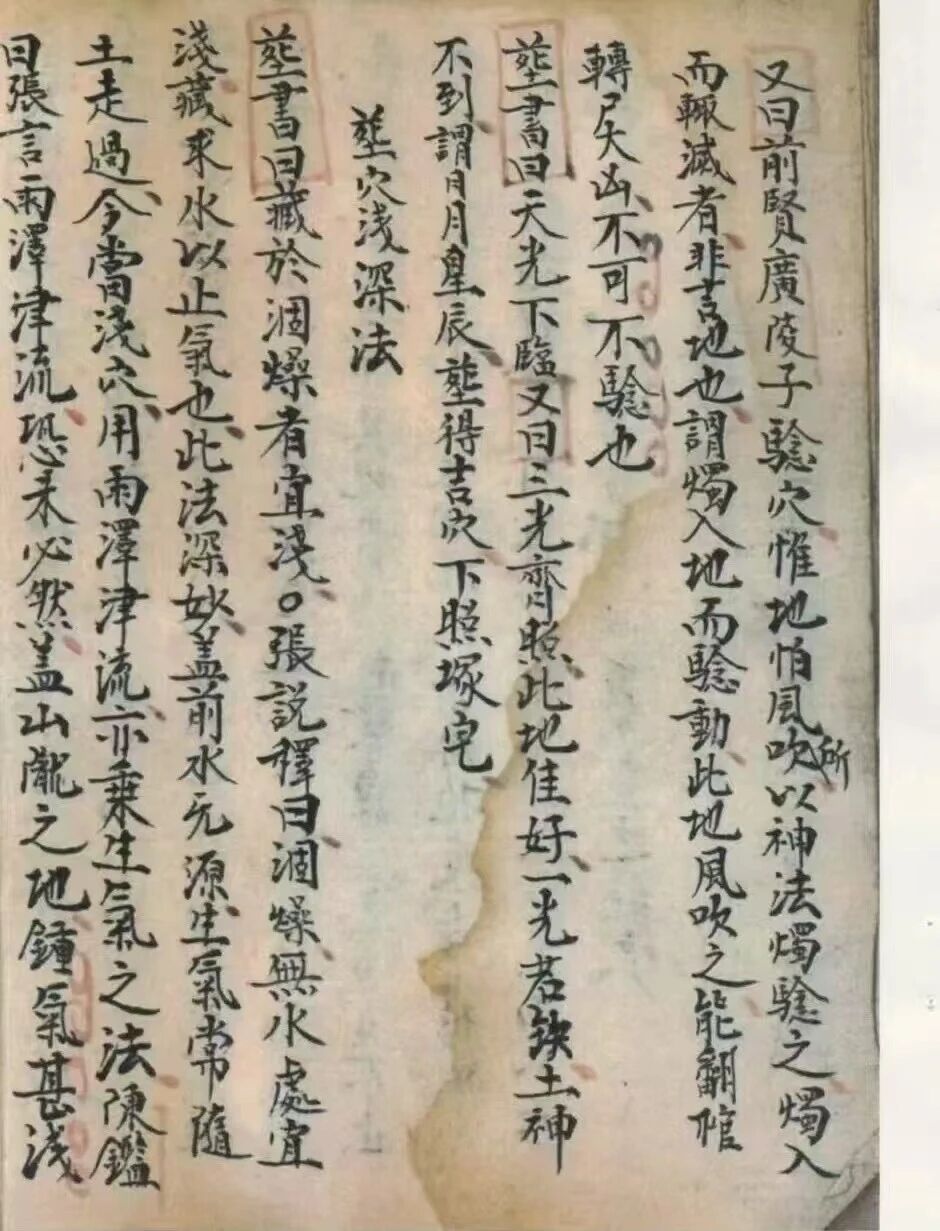 又曰前賢廣陵子驗穴惟地怕風吹所以神法燭驗之燭入
而輙滅者非吉地也謂燭入地而驗動此地風吹之能翻棺
轉尸大凶不可不驗也
塟書曰天光下臨又曰三光齊照此地佳好一光若缺土神
不到謂日月星辰塟得吉穴下照塚宅
塟穴浅深法
塟書曰藏於涸燥者宜淺○張説釋曰涸燥無水處宜
淺藏求水以止氣也此法深妙盖前水无源生氣常隨
土走過今當淺穴用雨澤津流亦乗生氣之法陳鑑
曰張言雨澤津流恐未必然盖山隴之地鍾氣甚浅